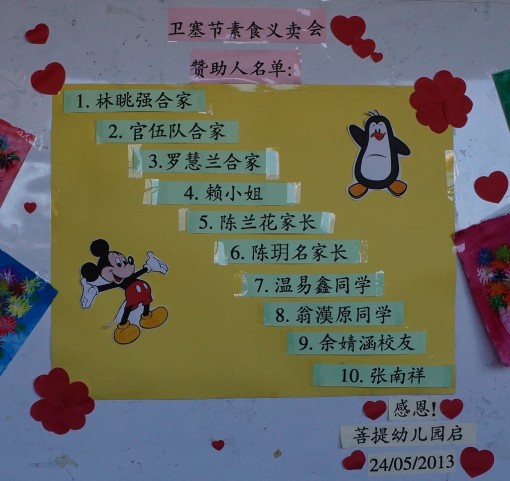 卫塞节素食义卖会
赞助人名单:
1. 林眺强合家
2. 官伍队合家
3.罗慧兰合家
4. 赖小姐
5. 陈兰花家长
6. 陈玥名家长
7. 温易鑫同学
8. 翁漠原同学
9. 余婧涵校友
10. 张南祥
感恩!
菩提幼儿园启
24/05/2013